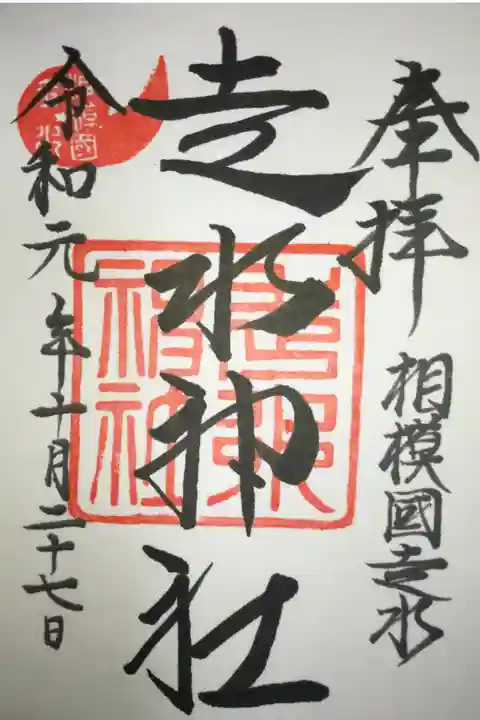 奉拝
相模國走水
走水神社
令和元年十月二十七日
相模國
走水